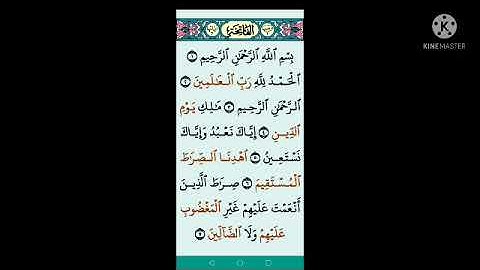 الفاتحة
بِسْمِ ٱللَّهِ ٱلرَّحْمَٰنِ ٱلرَّحِيمِ ١
ٱلْحَمْدُ لِلَّهِ رَبِّ ٱلْعَٰلَمِينَ ٢
ٱلرَّحْمَٰنِ ٱلرَّحِيمِ ٣ مَٰلِكِ يَوْمِ
ٱلدِّينِ ٤ إِيَّاكَ نَعْبُدُ وَإِيَّاكَ
نَسْتَعِينُ ٥ ٱهْدِنَا ٱلصِّرَٰطَ
ٱلْمُسْتَقِيمَ ٦ صِرَٰطَ ٱلَّذِينَ
أَنْعَمْتَ عَلَيْهِمْ غَيْرِ ٱلْمَغْضُوبِ
عَلَيْهِمْ وَلَا ٱلضَّآلِّينَ ٧
KINEMASTER